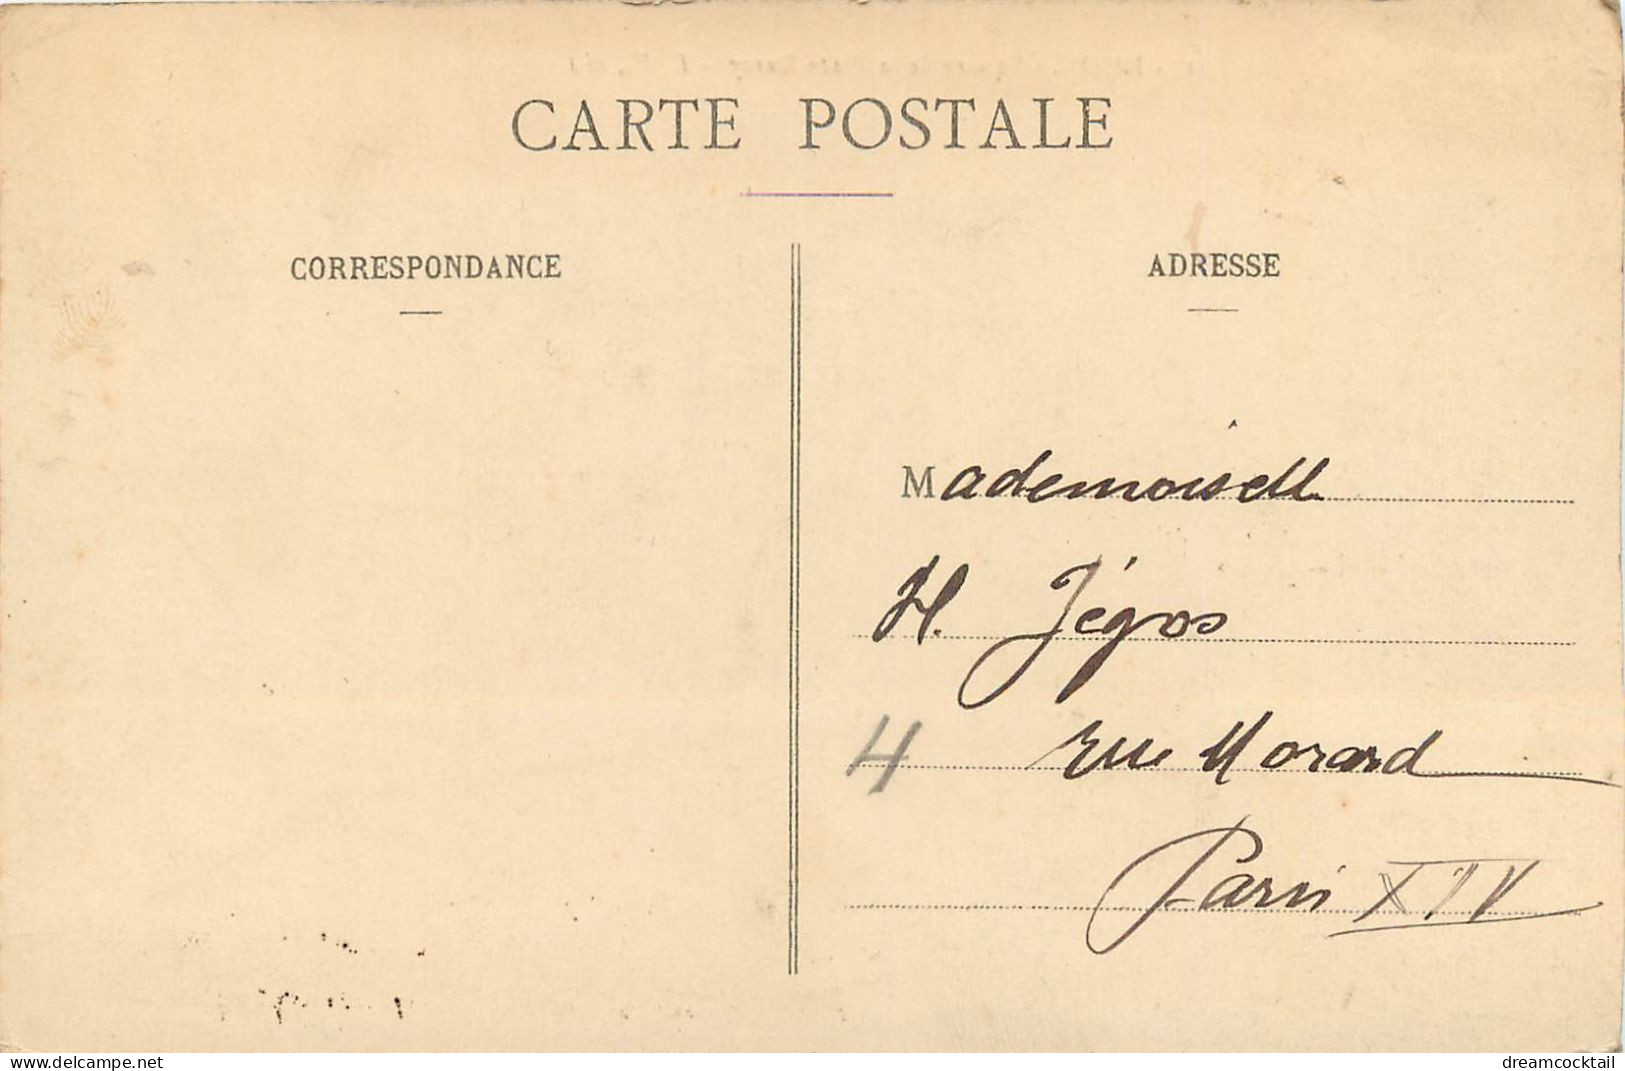 CARTE POSTALE
CORRESPONDANCE
ADRESSE
Mademoiselle
H. Jégos
4 rue Morard
Paris XIV
www.delcampe.net
dreamcocktail